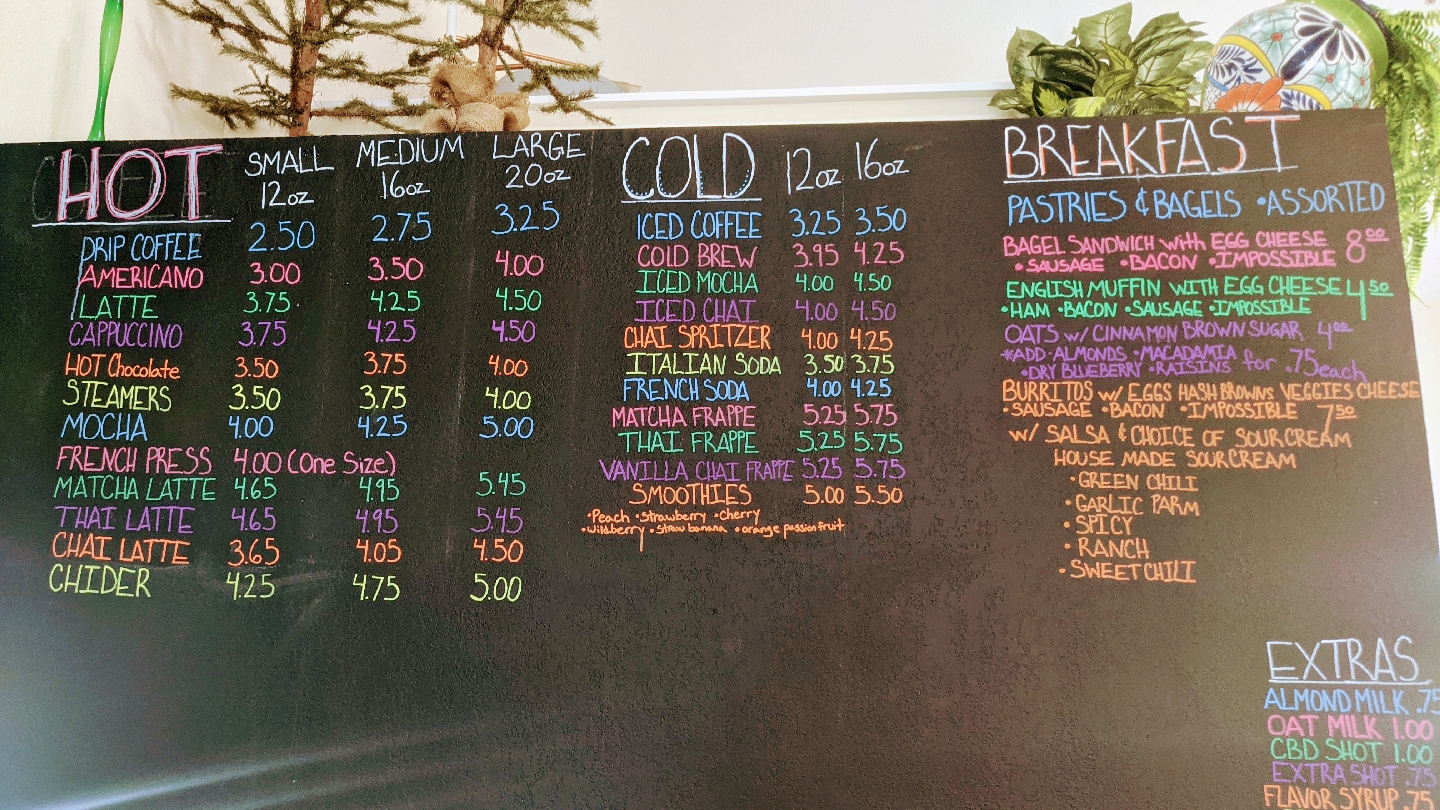 HOT SMALL MEDIUM LARGE
12oz 16oz 20oz
DRIP COFFEE 2.50 2.75 3.25
AMERICANO 3.00 3.50 4.00
LATTE 3.75 4.25 4.50
CAPPUCCINO 3.75 4.25 4.50
HOT Chocolate 3.50 3.75 4.00
STEAMERS 3.50 3.75 4.00
MOCHA 4.00 4.25 5.00
FRENCH PRESS 4.00 (One Size)
MATCHA LATTE 4.65 4.95 5.45
THAI LATTE 4.65 4.95 5.45
CHAI LATTE 3.65 4.05 4.50
CHIDER 4.25 4.75 5.00
COLD 12oz 16oz
ICED COFFEE 3.25 3.50
COLD BREW 3.95 4.25
ICED MOCHA 4.00 4.50
ICED CHAI 4.00 4.50
CHAI SPRITZER 4.00 4.25
ITALIAN SODA 3.50 3.75
FRENCH SODA 4.00 4.25
MATCHA FRAPPE 5.25 5.75
THAI FRAPPE 5.25 5.75
VANILLA CHAI FRAPPE 5.25 5.75
SMOOTHIES 5.00 5.50
•Peach •Strawberry •Cherry
•Wildberry •Straw banana •orange passionfruit
BREAKFAST
PASTRIES & BAGELS •ASSORTED
BAGEL SANDWICH with EGG CHEESE 8.00
•SAUSAGE •BACON •IMPOSSIBLE
ENGLISH MUFFIN WITH EGG CHEESE 4.50
•HAM •BACON •SAUSAGE •IMPOSSIBLE
OATS w/ CINNAMON BROWN SUGAR 4.00
*ADD •ALMONDS •MACADAMIA
•DRY BLUEBERRY •RAISINS for .75 each
BURRITOS w/ EGGS HASHBROWNS VEGGIES CHEESE
•SAUSAGE •BACON •IMPOSSIBLE 7.50
w/ SALSA & CHOICE OF SOURCREAM
HOUSE MADE SOURCREAM
•GREEN CHILI
•GARLIC PARM
•SPICY
•RANCH
•SWEET CHILI
EXTRAS
ALMOND MILK .75
OAT MILK 1.00
CBD SHOT 1.00
EXTRA SHOT .75
FLAVOR SYRUP .75